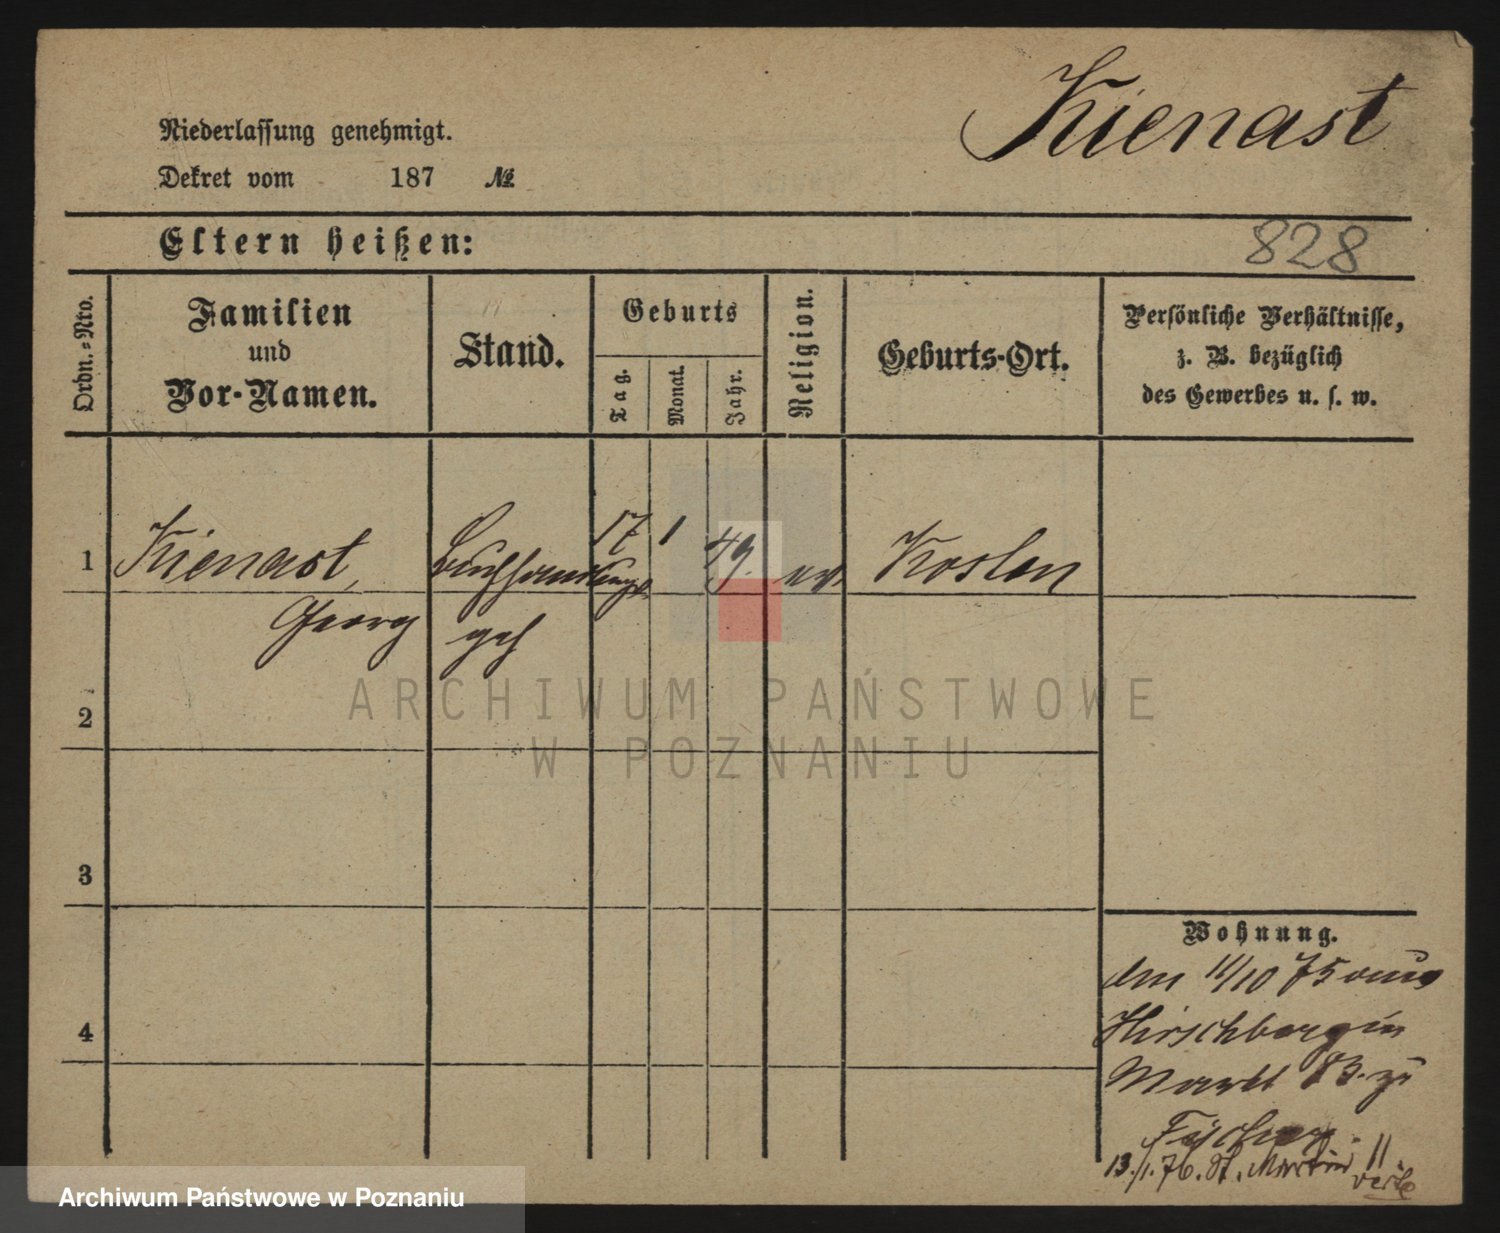 Kienast
Niederlassung genehmigt.
Dekret vom 187 №
Eltern heißen:
828
Ordn.-Nro.
Familien
und
Vor-Namen.
Stand.
Geburts
Tag.
Monat.
Jahr.
Religion.
Geburts-Ort.
Persönliche Verhältnisse,
z. B. bezüglich
des Gewerbes u. s. w.
1 Kienast, 17 1 49. ev.
Georg
2
3
4
Wohnung.
den 11/10 75 aus
Hirschberg in
Markt 83. zu
13./1.76. St. Martin 11
ARCHIWUM PAŃSTWOWE
W POZNANIU
Archiwum Państwowe w Poznaniu